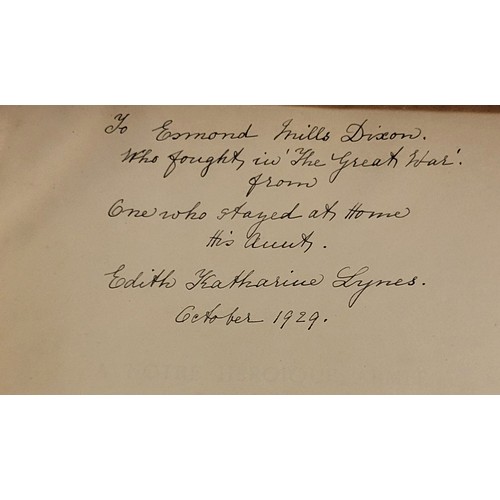 To Esmond Mills Dixon.
Who fought in 'The Great War'.
from
One who stayed at Home
His Aunt.
Edith Katharine Lynes.
October 1929.